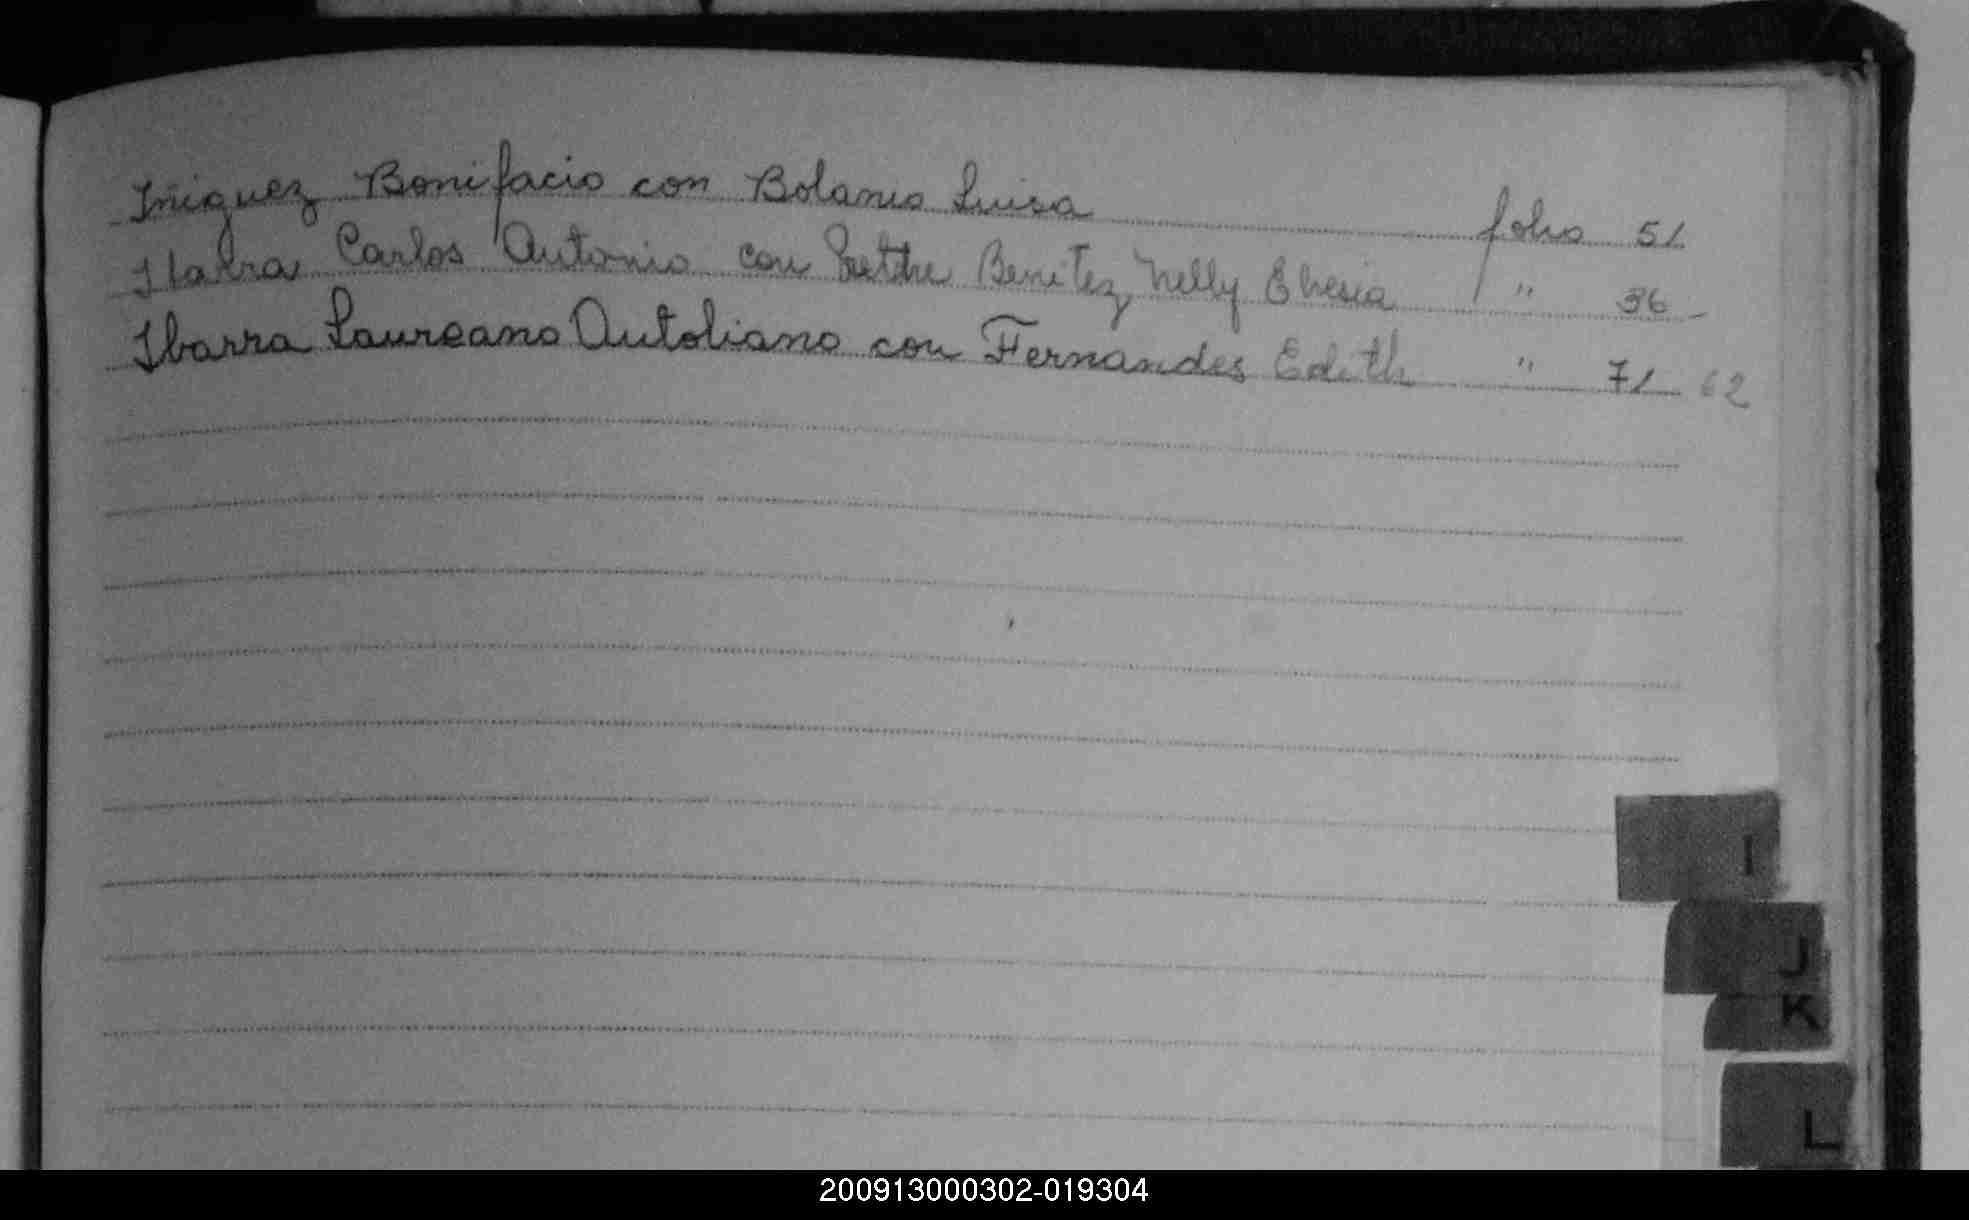 Iñiguez Bonifacio con Bolanio Luisa folio 51
Ibarra Carlos Antonio con Benitez Nelly " 36
Ibarra Laureano Autoliano con Fernandes Edith " 71 62
I
J
K
L
200913000302-019304